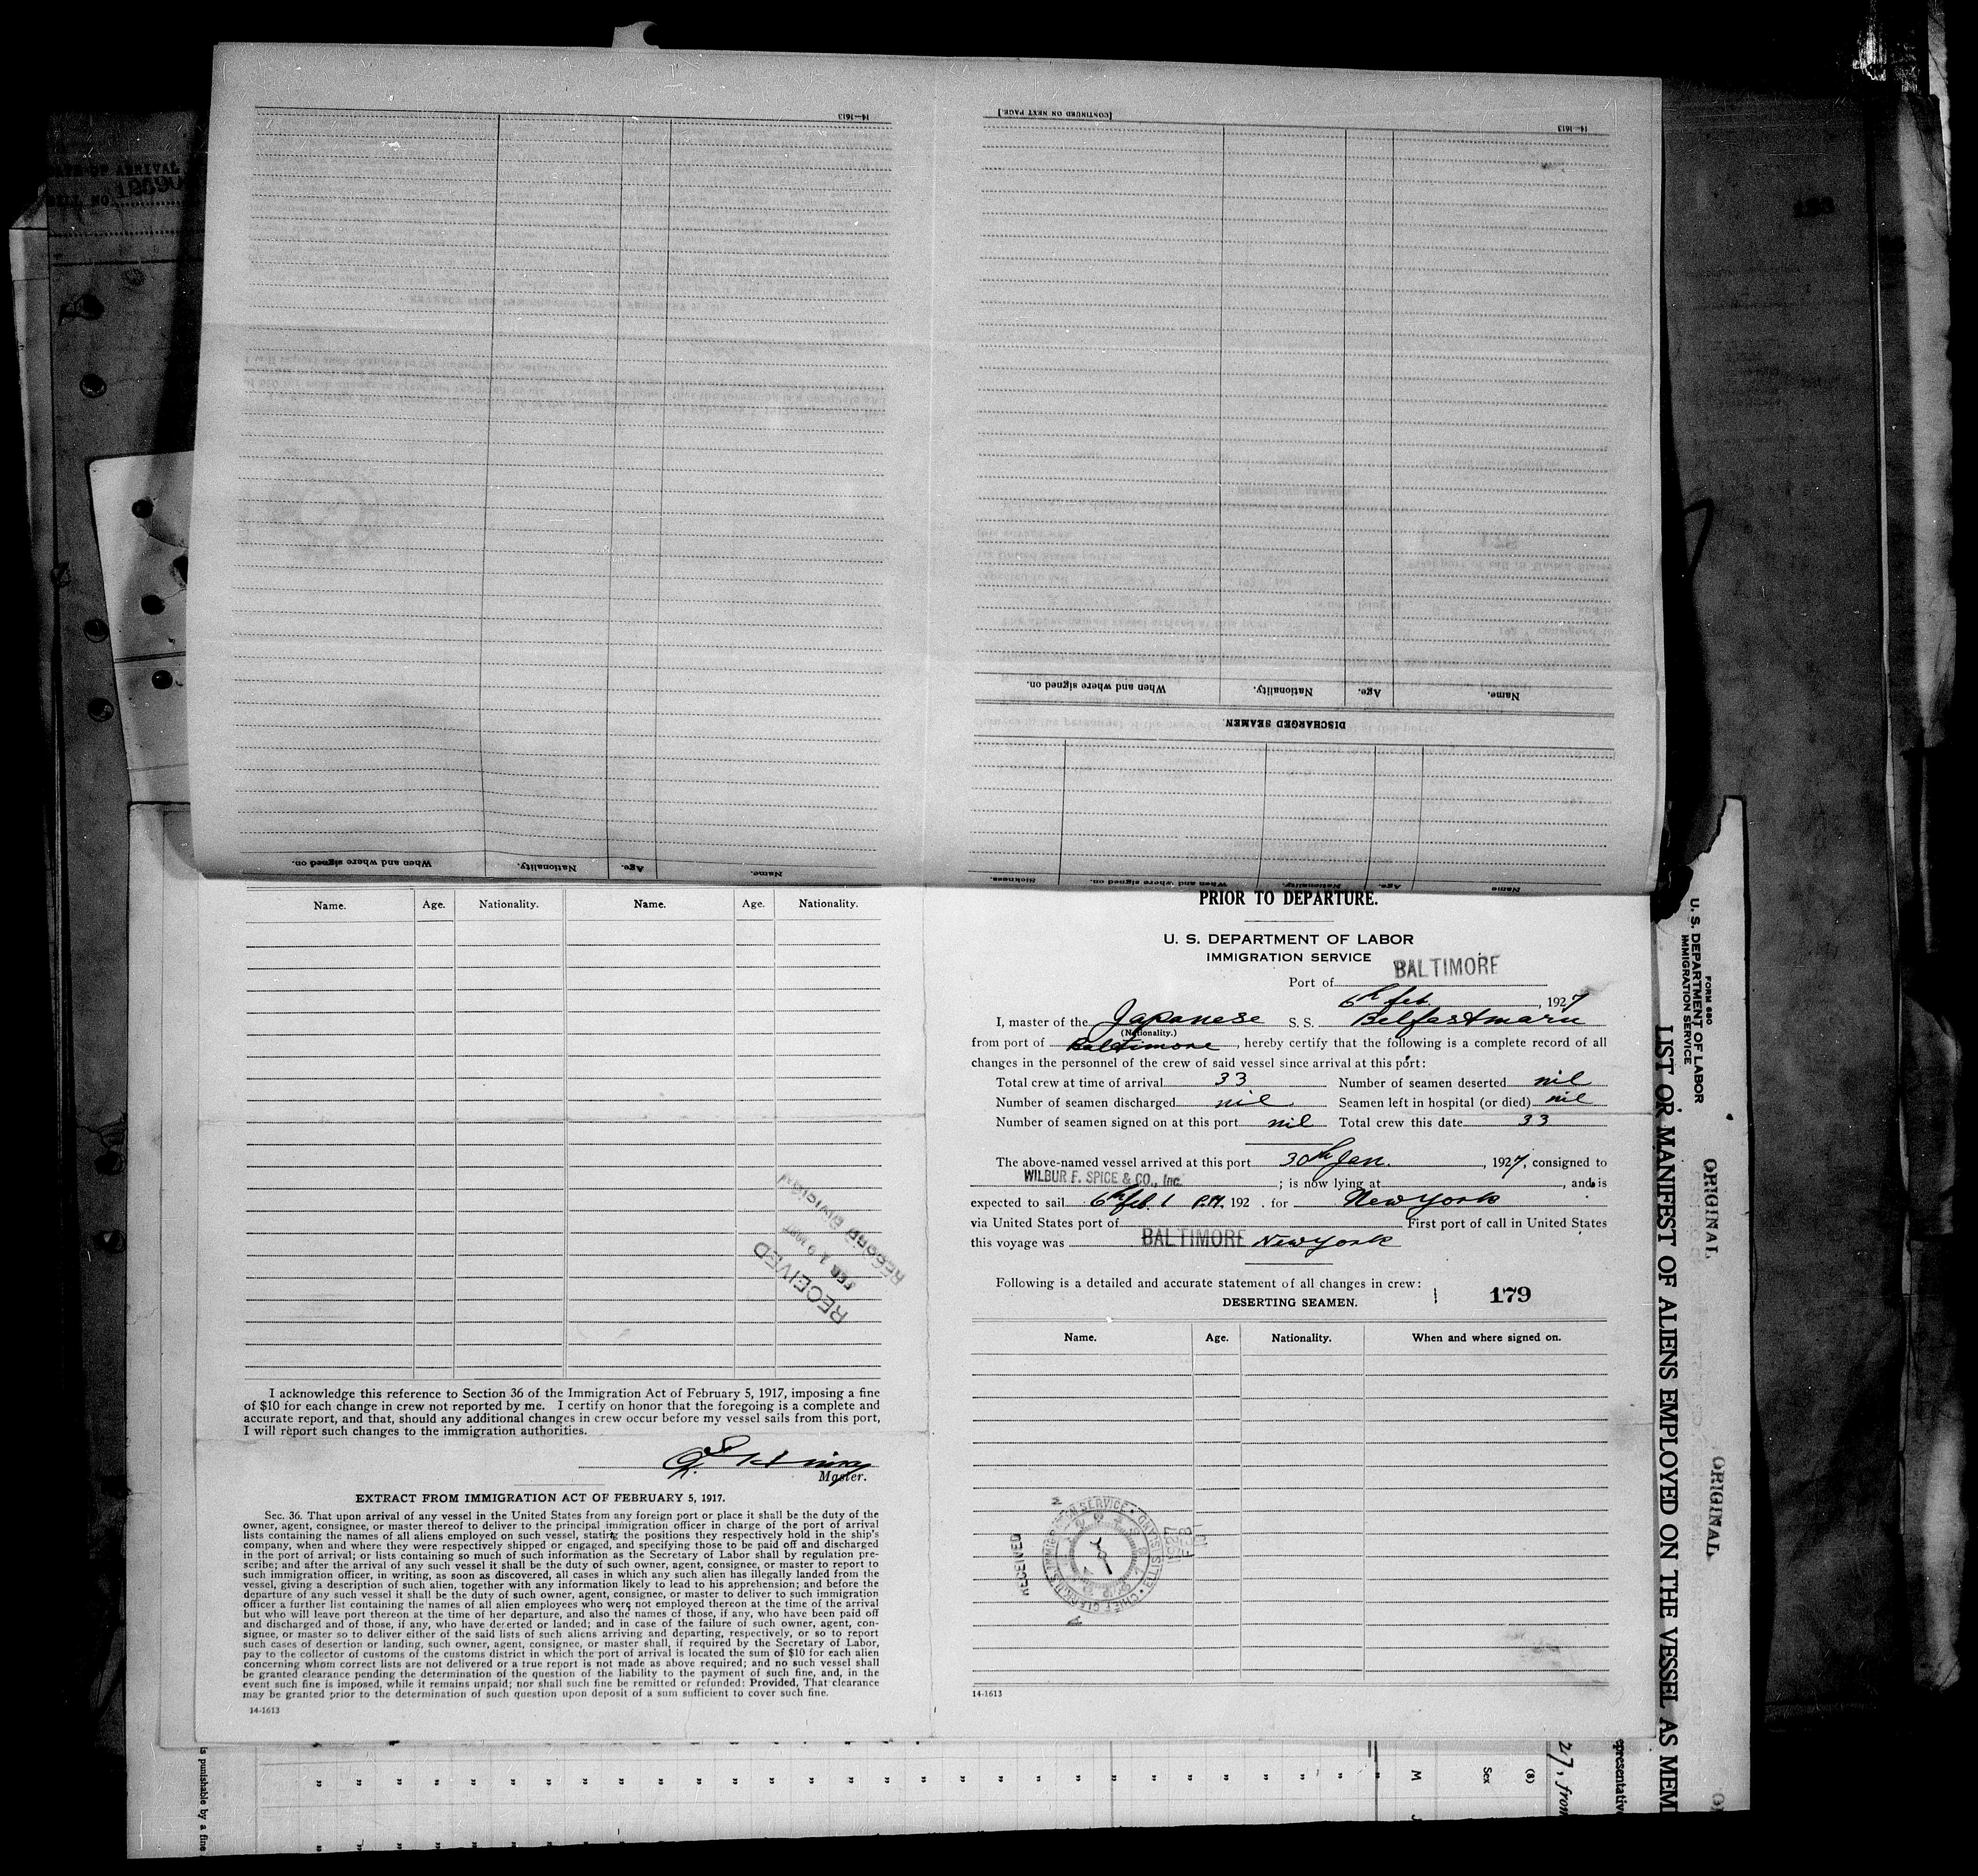 14—1613
[CONTINUED ON NEXT PAGE.]
14—1613
DATE OF ARRIVAL
NO. 12590
183
When and where signed on.
Nationality.
Age.
Name.
DISCHARGED SEAMEN.
When and where signed on.
Nationality.
Age.
Name.
Sickness.
When and where signed on.
Nationality.
Age.
Name
Name.
Age.
Nationality.
Name.
Age.
Nationality.
RECEIVED
FEB 10 1927
RECORD DIVISION
I acknowledge this reference to Section 36 of the Immigration Act of February 5, 1917, imposing a fine
of $10 for each change in crew not reported by me. I certify on honor that the foregoing is a complete and
accurate report, and that, should any additional changes in crew occur before my vessel sails from this port,
I will report such changes to the immigration authorities.
Master.
EXTRACT FROM IMMIGRATION ACT OF FEBRUARY 5, 1917.
Sec. 36. That upon arrival of any vessel in the United States from any foreign port or place it shall be the duty of the
owner, agent, consignee, or master thereof to deliver to the principal immigration officer in charge of the port of arrival
lists containing the names of all aliens employed on such vessel, stating the positions they respectively hold in the ship's
company, when and where they were respectively shipped or engaged, and specifying those to be paid off and discharged
in the port of arrival; or lists containing so much of such information as the Secretary of Labor shall by regulation pre-
scribe; and after the arrival of any such vessel it shall be the duty of such owner, agent, consignee, or master to report to
such immigration officer, in writing, as soon as discovered, all cases in which any such alien has illegally landed from the
vessel, giving a description of such alien, together with any information likely to lead to his apprehension; and before the
departure of any such vessel it shall be the duty of such owner, agent, consignee, or master to deliver to such immigration
officer a further list containing the names of all alien employees who were not employed thereon at the time of the arrival
but who will leave port thereon at the time of her departure, and also the names of those, if any, who have been paid off
and discharged and of those, if any, who have deserted or landed; and in case of the failure of such owner, agent, con-
signee, or master so to deliver either of the said lists of such aliens arriving and departing, respectively, or so to report
such cases of desertion or landing, such owner, agent, consignee, or master shall, if required by the Secretary of Labor,
pay to the collector of customs of the customs district in which the port of arrival is located the sum of $10 for each alien
concerning whom correct lists are not delivered or a true report is not made as above required; and no such vessel shall
be granted clearance pending the determination of the question of the liability to the payment of such fine, and, in the
event such fine is imposed, while it remains unpaid; nor shall such fine be remitted or refunded: Provided, That clearance
may be granted prior to the determination of such question upon deposit of a sum sufficient to cover such fine.
14-1613
PRIOR TO DEPARTURE.
U. S. DEPARTMENT OF LABOR
IMMIGRATION SERVICE
Port of BALTIMORE
6th feb. , 1927
I, master of the Japanese S. S. Belfastmaru
(Nationality.)
from port of Baltimore, hereby certify that the following is a complete record of all
changes in the personnel of the crew of said vessel since arrival at this port:
Total crew at time of arrival 33 Number of seamen deserted nil
Number of seamen discharged nil Seamen left in hospital (or died) nil
Number of seamen signed on at this port nil Total crew this date 33
The above-named vessel arrived at this port 30th Jan. , 1927, consigned to
WILBUR F. SPICE & CO., Inc. ; is now lying at , and is
expected to sail 6th feb. 1 P.M. 192 . for New York
via United States port of First port of call in United States
this voyage was BALTIMORE New York
Following is a detailed and accurate statement of all changes in crew:
179
DESERTING SEAMEN.
Name.
Age.
Nationality.
When and where signed on.
RECEIVED
14-1613
FORM 680
U. S. DEPARTMENT OF LABOR
IMMIGRATION SERVICE
LIST OR MANIFEST OF ALIENS EMPLOYED ON THE VESSEL AS MEM
ORIGINAL
ORIGINAL
is punishable by a fine
M
Sex
(8)
27, from
epresentative